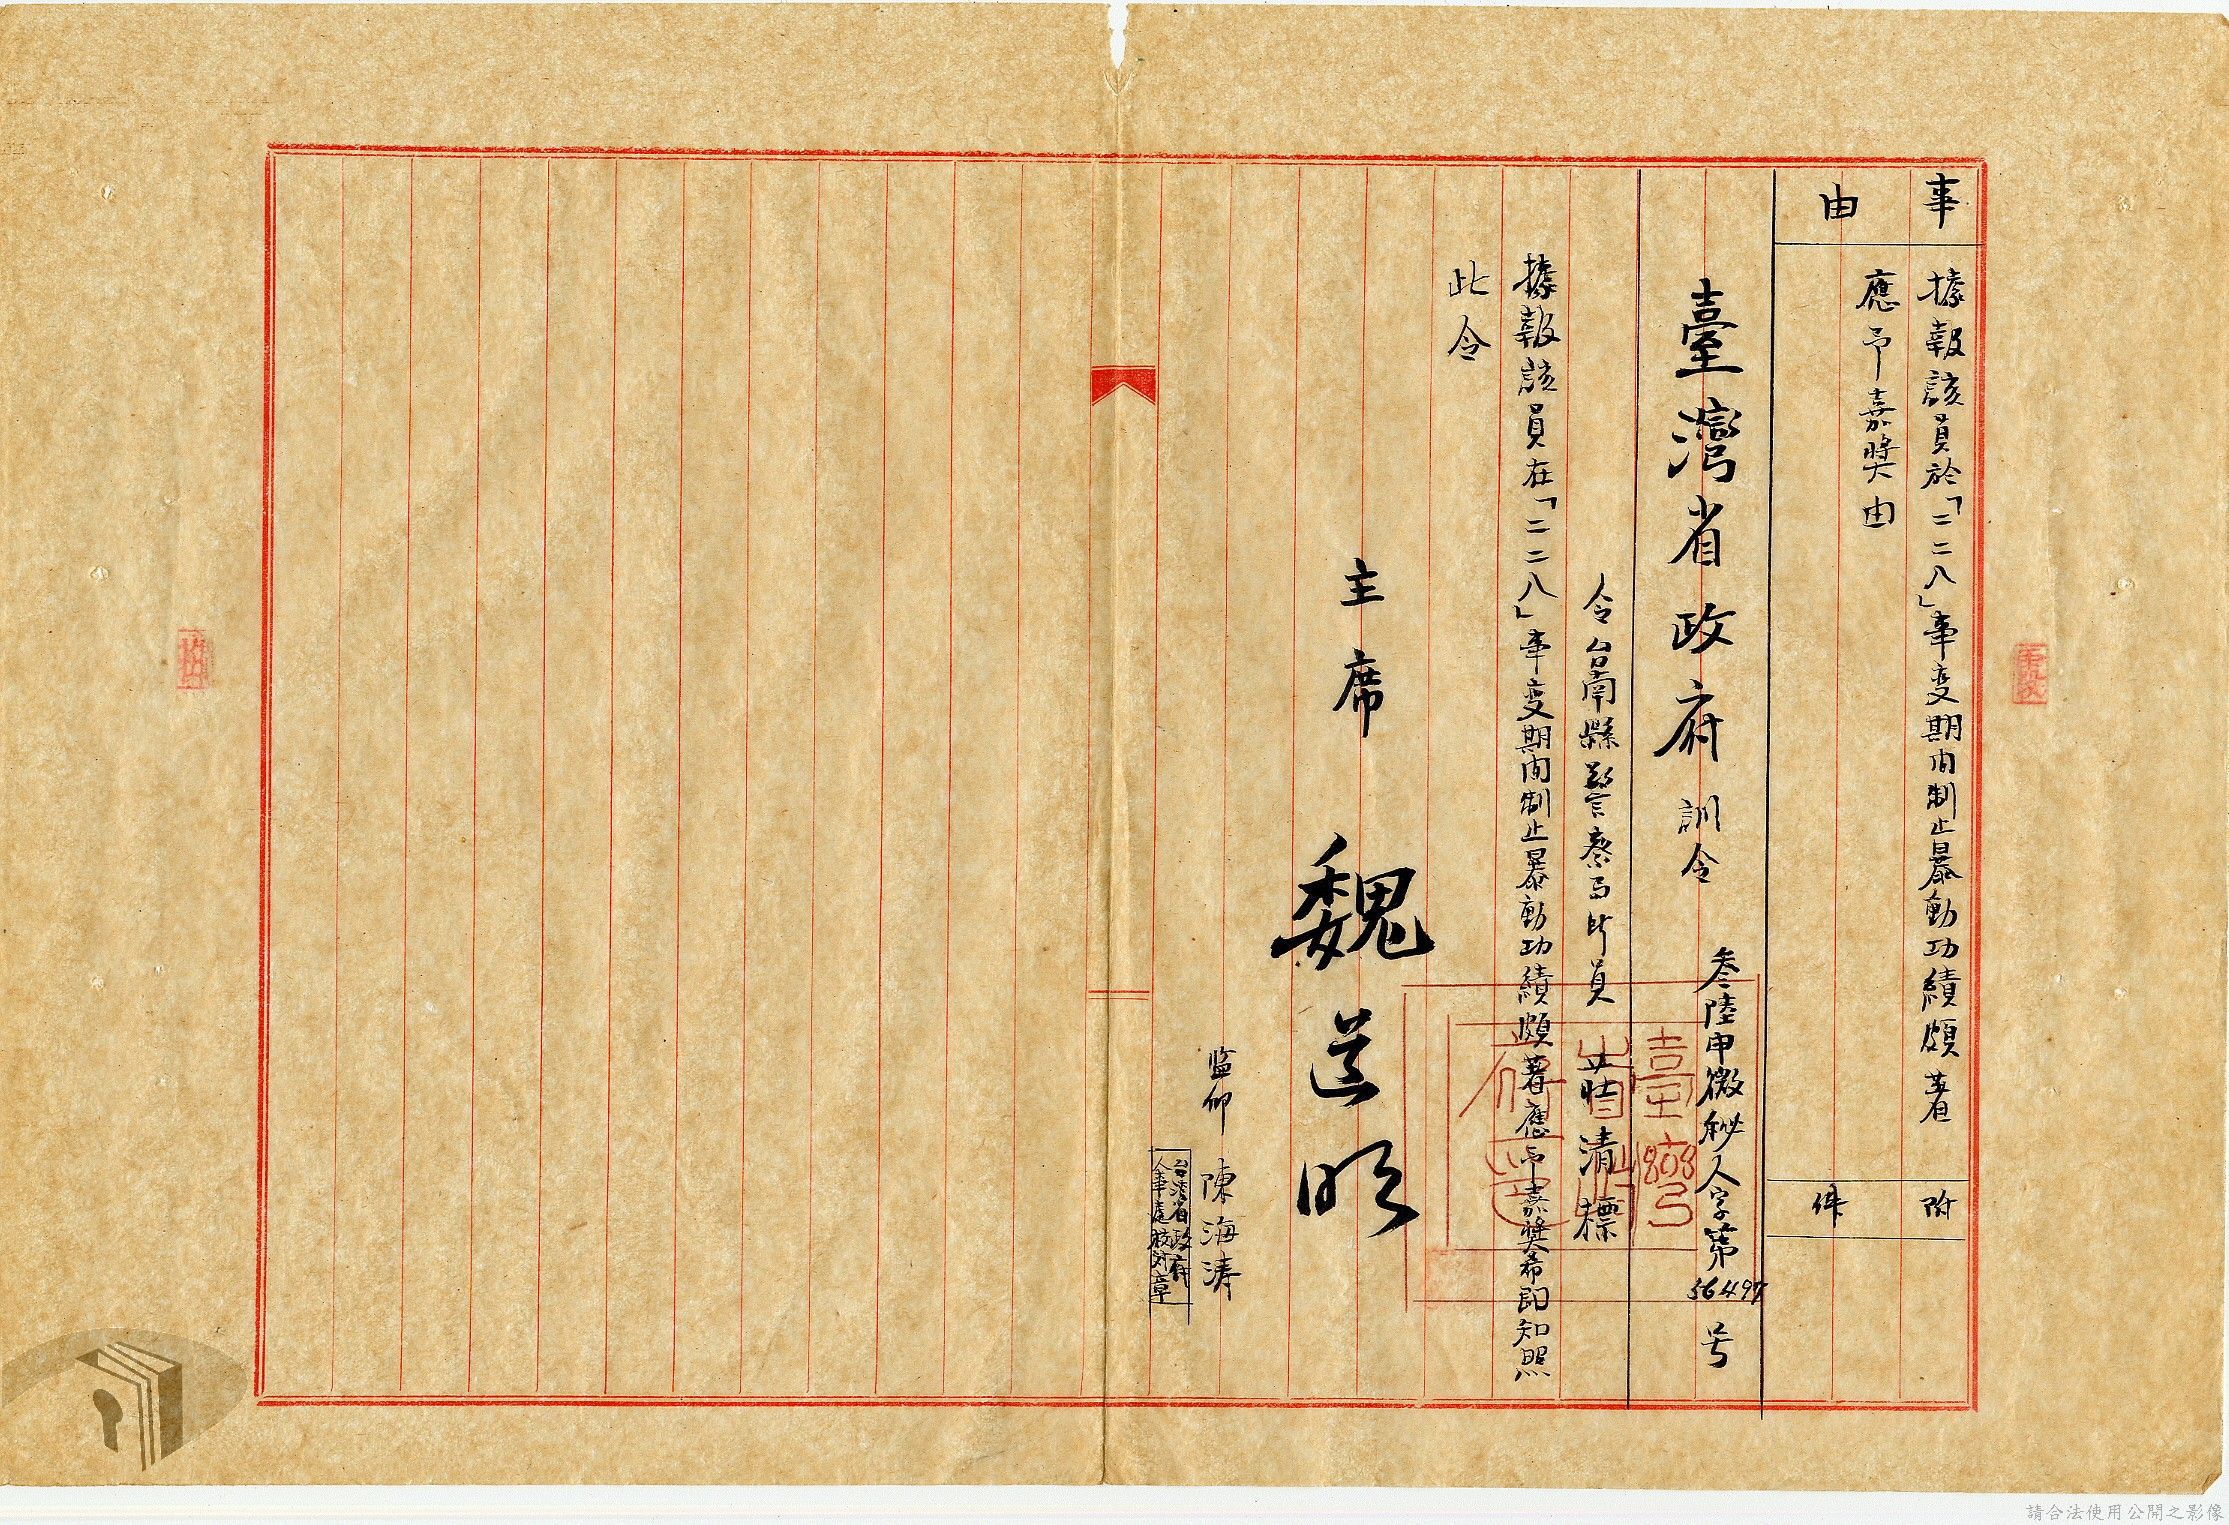 事由
據報該員於「二二八」事变期间制止暴動功績頗著
應予嘉獎由
附件
臺灣省政府訓令
叁陸申微秘人字第56497号
令台南縣警察局所員 莊清標
據報該員在「二二八」事变期间制止暴動功績頗著應予嘉獎希即知照
此令
主席 魏道明
监印 陳海涛
台湾省政府
人事處校对章
請合法使用公開之影像